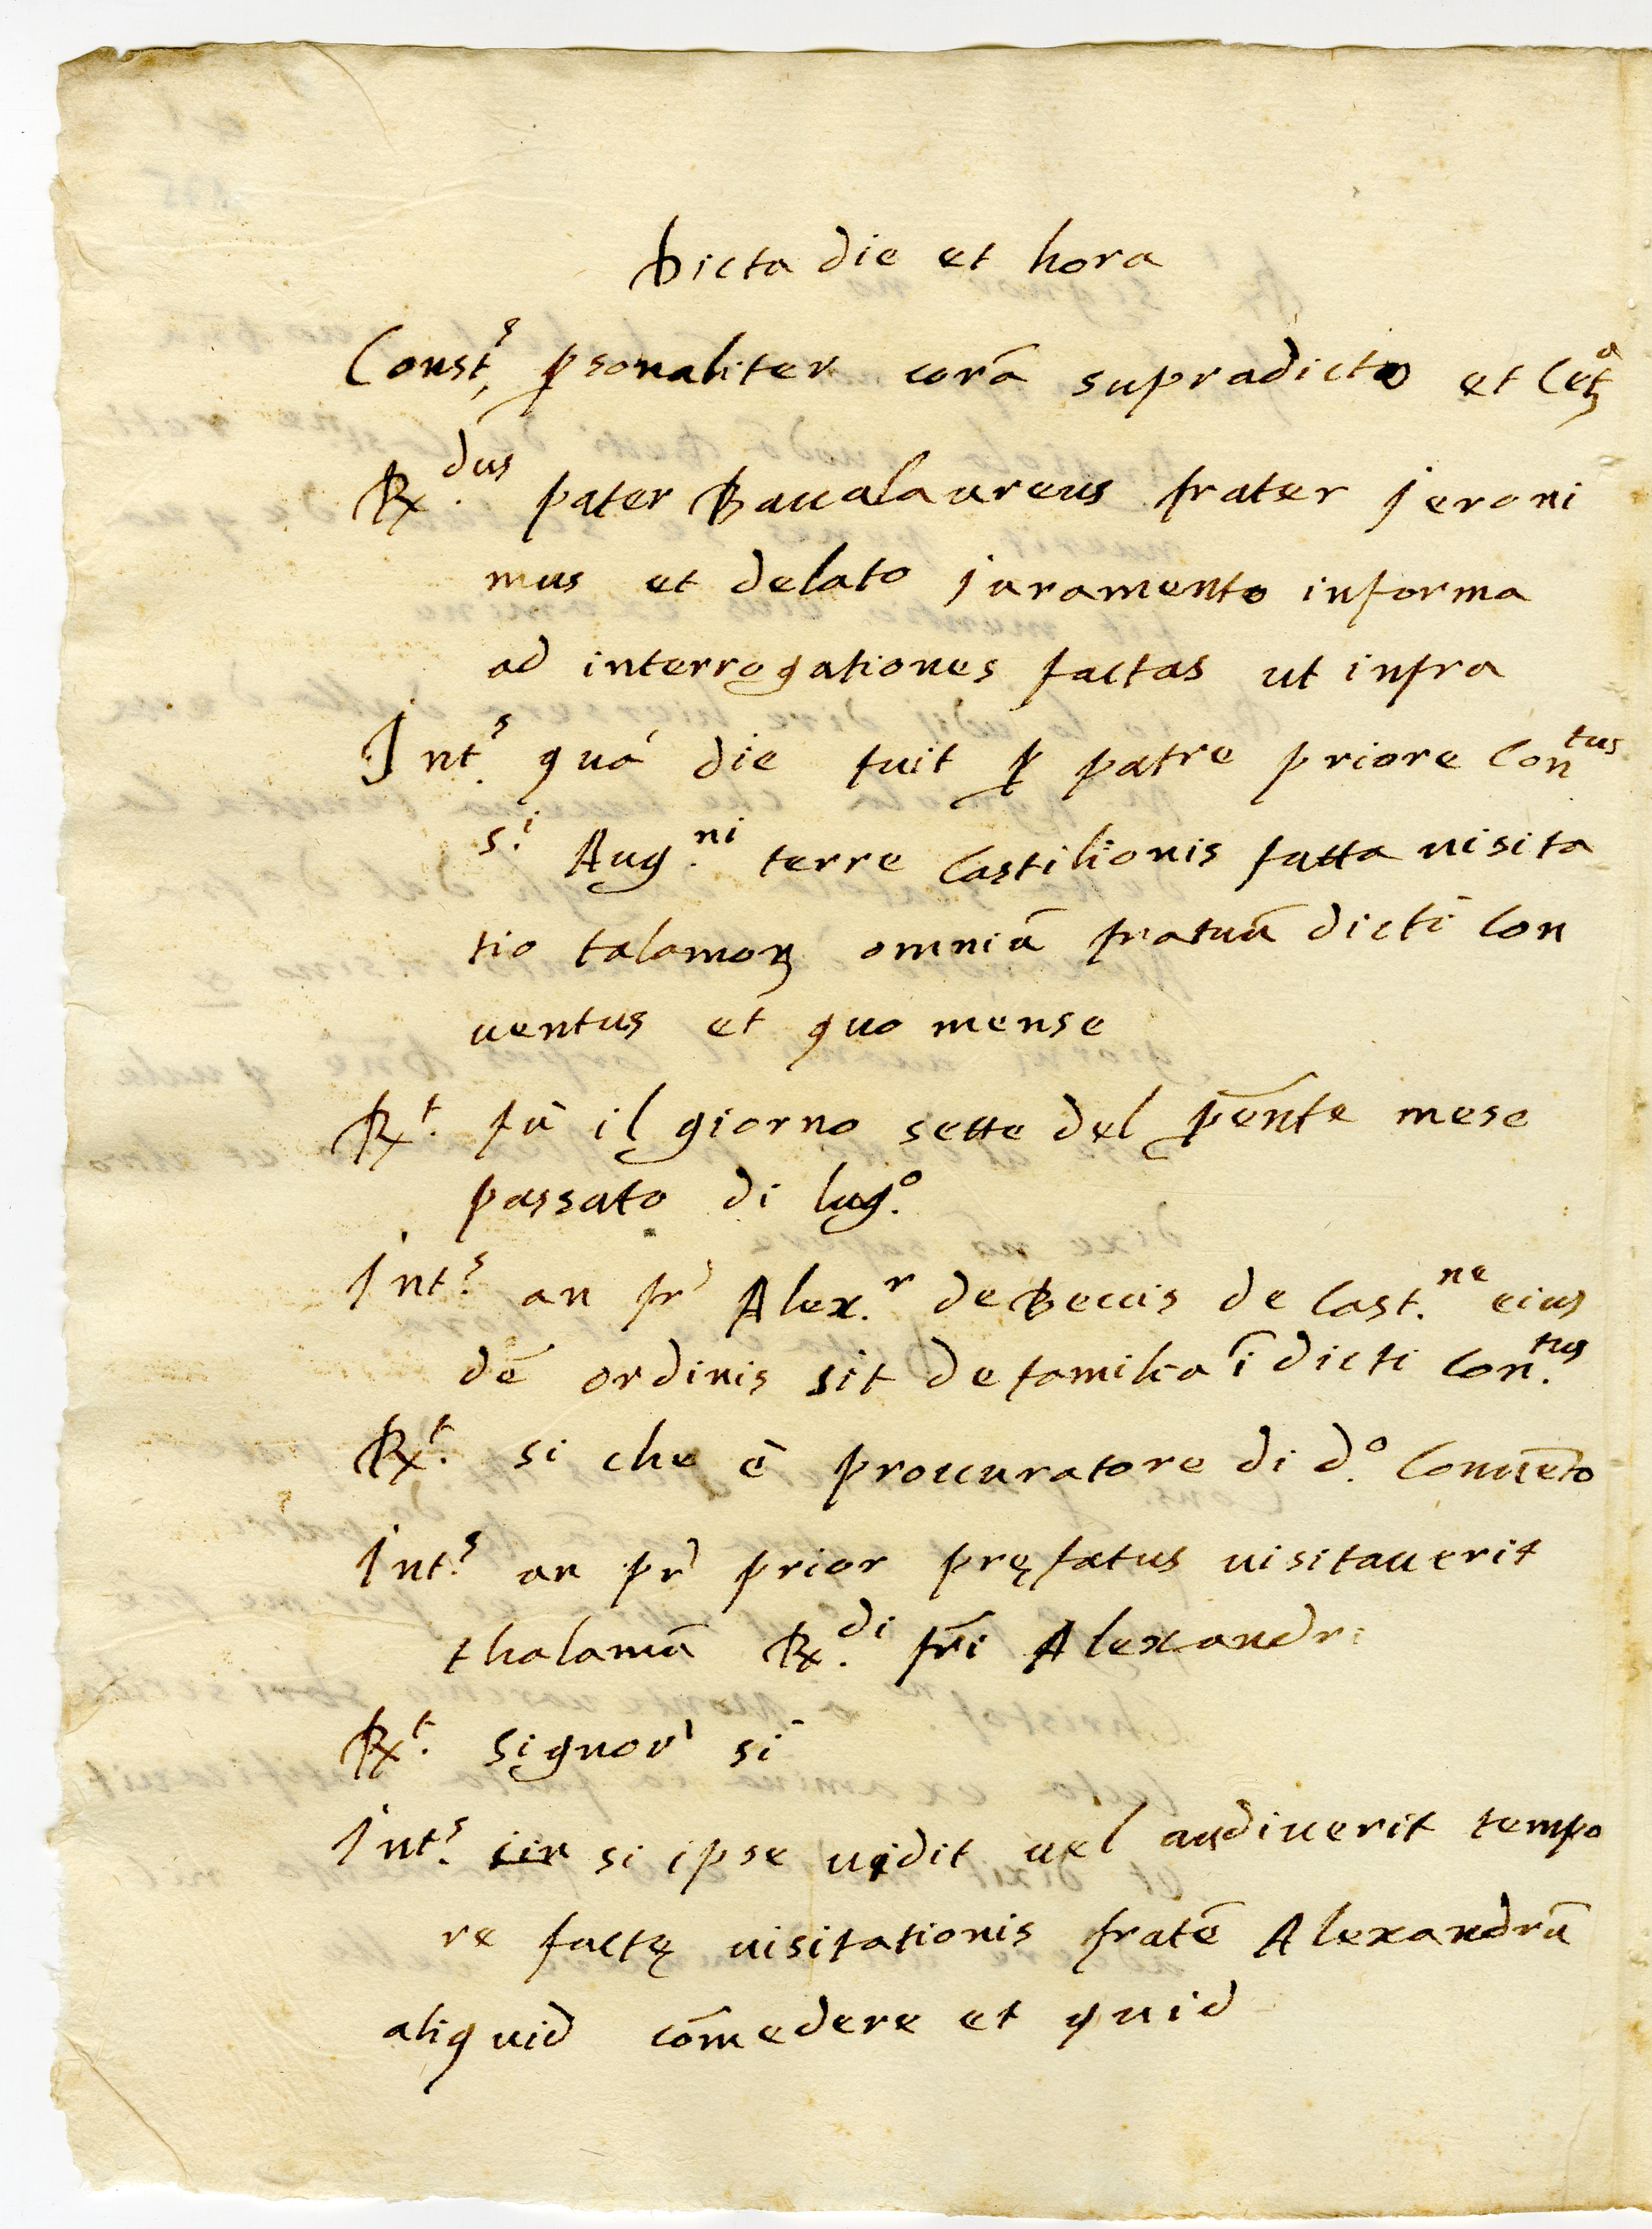 Dicta die et hora
Const.s ꝑsonaliter corã supradicto et Cetꝫa
R.dus pater Bacalaureus frater Jeroni
mus et delato juramento informa
ad interrogationes factas ut infra
Int.s qua die fuit ꝑ patre priore Contus
S.i Aug.ni terre Castilionis facta uisita
tio talamoꝝ omniũ fratruũ dicti Con
uentus et quo mense
R.t fù il giorno sette del pẽnte mese
passato di lug.o
Int.s an fr Alex.r de Beccis de Cast.ne eius
dẽ ordinis sit de familia ĩ dicti Con.tus
R.t si che è procuratore di d.o Conuẽto
Int.s an pr prior pręfatus uisitauerit
thalamũ R.di fr̃i Alexandri
R.t Signor si
Int.s si ipse uidit uel audiuerit tempo
re factę uisitationis fratẽ Alexandrũ
aliquid cõmedere et quid